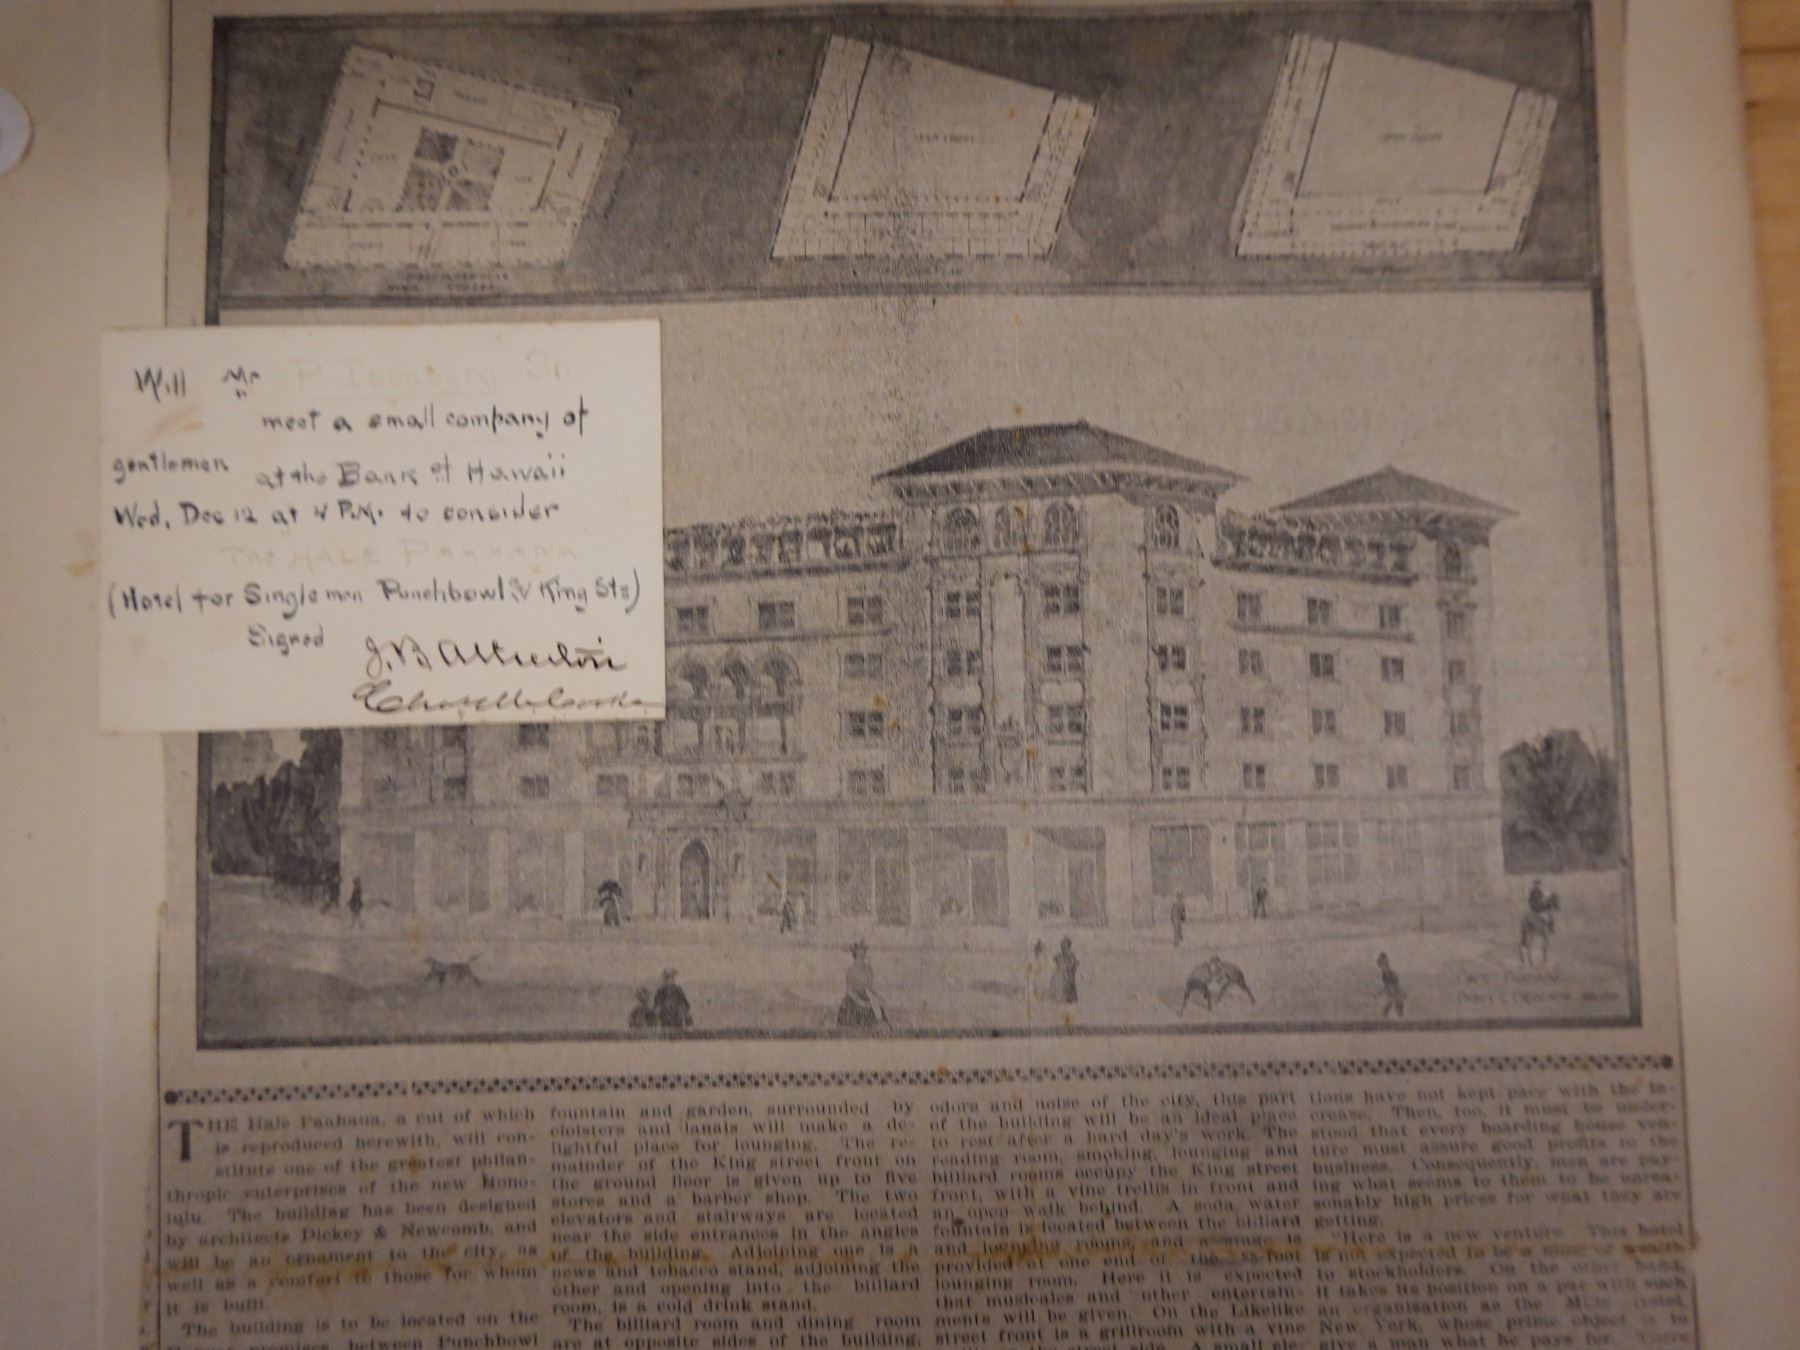 Will Mr P Isenberg Sr
meet a small company of
gentlemen at the Bank of Hawaii
Wed, Dec 12 at 4 P.M. to consider
The "HALE PAAHANA"
(Hotel for Single men Punchbowl & King Sts)
Signed
J. B. Atherton
Chas M. Cooke
THE Hale Paahaua, a cut of which
is reproduced herewith, will con-
stitute one of the greatest philan-
thropic enterprises of the new Hono-
lulu. The building has been designed
by architects Dickey & Newcomb, and
will be an ornament to the city, as
well as a comfort to those for whom
it is built.
The building is to be located on the
between Punchbowl
fountain and garden, surrounded by
cloisters and lanais will make a de-
lightful place for lounging. The re-
mainder of the King street front on
the ground floor is given up to five
stores and a barber shop. The two
elevators and stairways are located
near the side entrances in the angles
of the building. Adjoining one is a
news and tobacco stand, adjoining the
other and opening into the billiard
room, is a cold drink stand.
The billiard room and dining room
are at opposite sides of the building,
odors and noise of the city, this part
of the building will be an ideal place
to rest after a hard day's work. The
reading room, smoking, lounging and
billiard rooms occupy the King street
front, with a vine trellis in front and
an open walk behind. A soda water
fountain is located between the billiard
and lounging rooms, and a stage is
provided at one end of the foot
lounging room. Here it is expected
that musicales and other entertain-
ments will be given. On the Likelike
street front is a grillroom with a vine
the street side. A small ele-
tions have not kept pace with the in-
crease. Then, too, it must be under-
stood that every boarding house ven-
ture must assure good profits to the
business. Consequently, men are pay-
ing what seems to them to be unrea-
sonably high prices for what they are
getting.
"Here is a new venture. This hotel
is not expected to be a mine of wealth
to stockholders. On the other hand,
it takes its position on a par with such
an organisation as the Mills Hotel,
New York, whose prime object is to
give a man what he pays for.